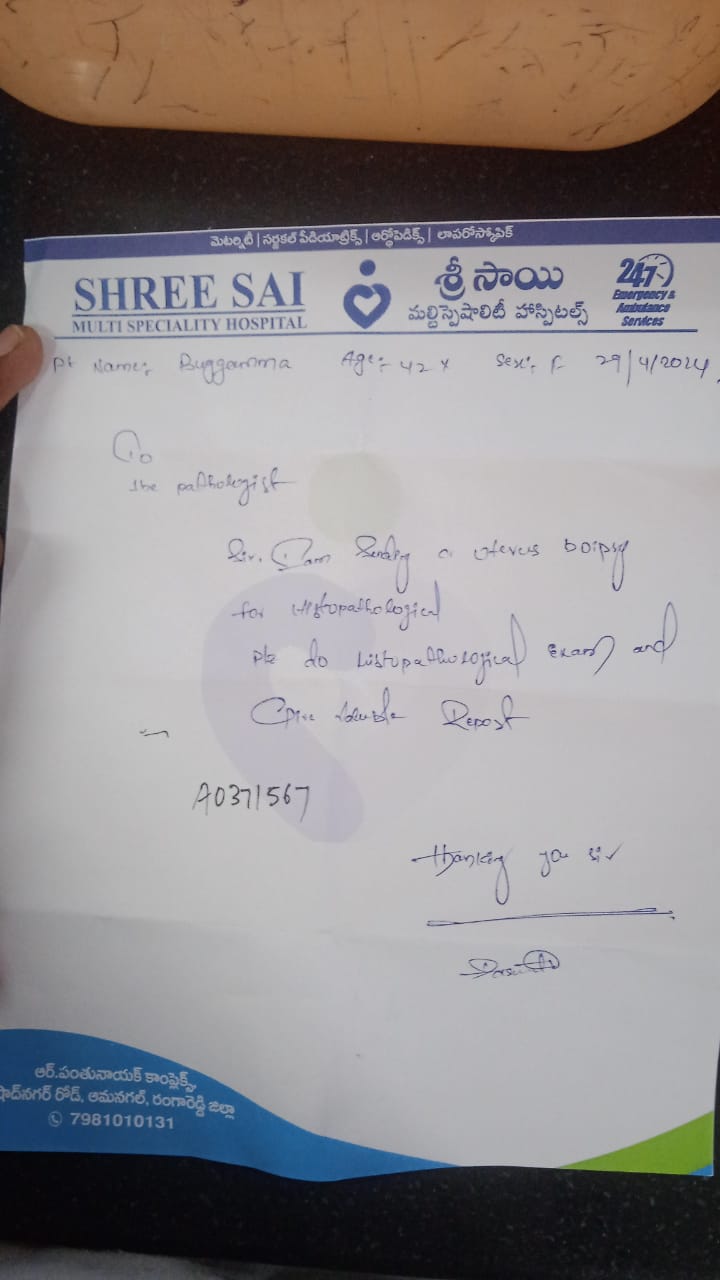 మెటర్నిటీ | సర్జికల్ పేడియాట్రిక్స్ | ఆర్థోపెడిక్స్ | లాపరోస్కోపిక్
SHREE SAI
MULTI SPECIALITY HOSPITAL
శ్రీ సాయి
మల్టిస్పెషాలిటీ హాస్పిటల్స్
24/7
Emergency &
Ambulance
Services
Pt Name:- Buggamma Age:- 42 Y Sex:- F 29/4/2024
To
the pathologist
Sir. I am Sending a uterus boipsy
for Histopathological
plz do Histopathological Exam and
Give Report
A0371567
thanking you sir
ఆర్.పంతునాయక్ కాంప్లెక్స్,
షాద్‌నగర్ రోడ్, ఆమనగల్, రంగారెడ్డి జిల్లా
7981010131